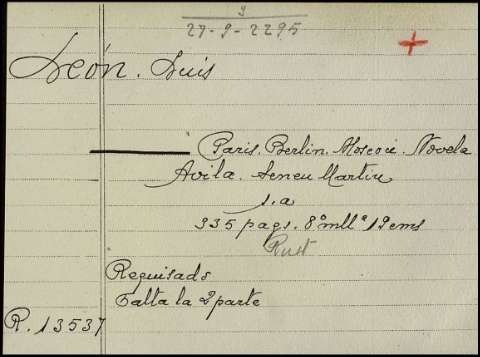 3
27-9-2295
León. Luis
Paris. Berlin. Moscou. Novela
Avila. Seneu Martin
s.a
335 pags. 8º mllª 19 cms
Rust
Requisado
Falta la 2 parte
R. 13537